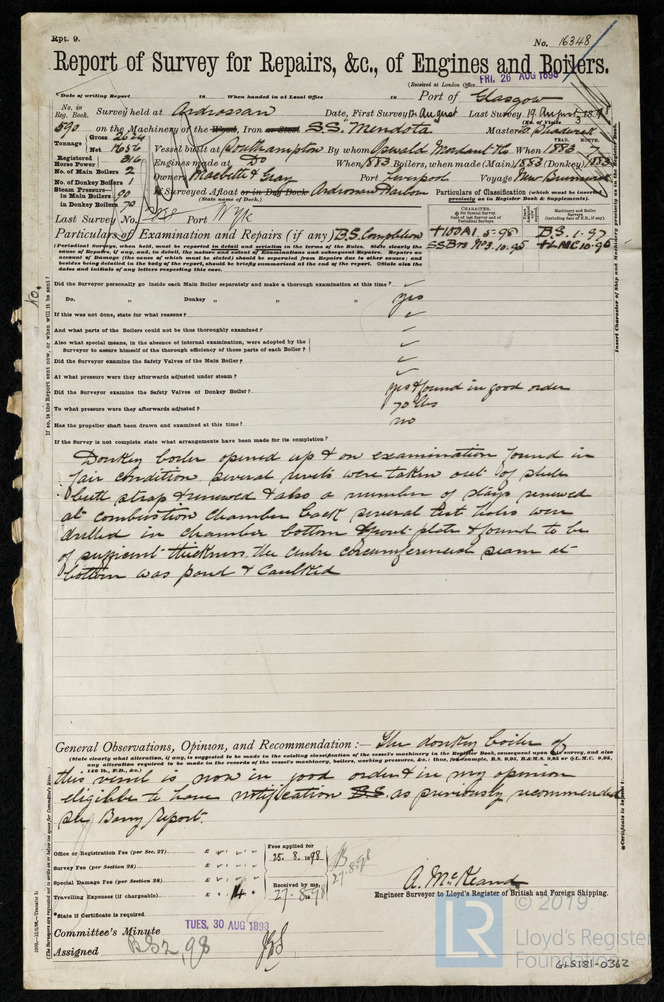 Rpt. 9.
No. 16348
Report of Survey for Repairs, &c., of Engines and Boilers.
(Received at London Office FRI. 26 AUG 1898
Date of writing Report 18 When handed in at Local Office 18 Port of Glasgow
No. in Reg. Book. Survey held at Ardrossan Date, First Survey 17 August Last Survey 19 August 1898
590 on the Machinery of the Wood, Iron or Steel S.S. "Mendota" Master
Tonnage Gross 2624 Net 1656 Vessel built at Southampton By whom Oswald Mordaunt & Co When 1883 7
Registered Horse Power 316 Engines made at Do When 1883 Boilers, when made (Main) 1883 (Donkey) 1883
No. of Main Boilers 2 Owners Macbeth & Gray Port Liverpool Voyage New Brunswick
No. of Donkey Boilers 1
Steam Pressure in Main Boilers 90 If Surveyed Afloat or in Dry Dock Ardrossan Harbour
in Donkey Boilers 70 (State name of Dock.)
Particulars of Classification (which must be inserted precisely as in Register Book & Supplements).
Last Survey No. Port
Particulars of Examination and Repairs (if any) B.S. Completion
+100A1. 5.98 B.S. 1.97
SSBro No3. 10.95 +LMC 10.95
Did the Surveyor personally go inside each Main Boiler separately and make a thorough examination at this time?
Do. " Donkey " " " yes
If this was not done, state for what reasons?
And what parts of the Boilers could not be thoroughly examined?
Also what special means, in the absence of internal examination, were adopted by the
Surveyor to assure himself of the thorough efficiency of those parts of each Boiler?
Did the Surveyor examine the Safety Valves of the Main Boiler?
At what pressure were they afterwards adjusted under steam?
Did the Surveyor examine the Safety Valves of Donkey Boiler? yes & found in good order
To what pressure were they afterwards adjusted? 70 lbs
Has the propeller shaft been drawn and examined at this time? no
If the Survey is not complete state what arrangements have been made for its completion?
Donkey boiler opened up & on examination found in
fair condition, several rivets were taken out of shell
butt strap & renewed & also a number of stays renewed
at combustion chamber back several test holes were
drilled in chamber bottom & front plate & found to be
of sufficient thickness. the centre circumferencial seam at
bottom was pand & caulked
General Observations, Opinion, and Recommendation:— The donkey boiler of
(State clearly what alteration, if any, is suggested to be made in the existing classification of the vessel's machinery in the Register Book, consequent upon this survey, and also
any alteration required to be made in the records of the vessel's machinery, boilers, working pressures, &c.: thus, for example, B.S. 9.95, B.&M.S. 9.95 or L.M.C. 9.95,
140 lb., F.D., &c.)
this vessel is now in good order & in my opinion
eligible to have notification B.S. as previously recommended
see Barry Report.
Office or Registration Fee (per Sec. 27).. £
Survey Fee (per Section 28)... £
Special Damage Fee (per Section 28)... £
Travelling Expenses (if chargeable). £ 4
Fees applied for
25.8.1898
Received by me,
27-8-98
27-8-98
A. McKeand
Engineer Surveyor to Lloyd's Register of British and Foreign Shipping.
*State if Certificate is required
Committee's Minute TUES. 30 AUG 1898
Assigned BS 2,98
LR
© 2019
Lloyd's Register
Foundation
GLS181-0362